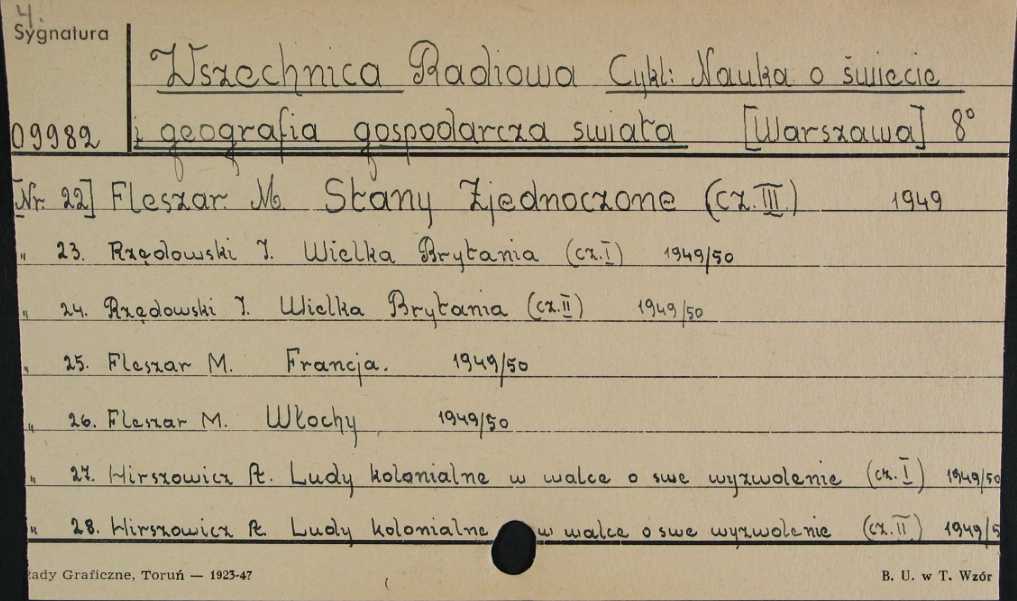 4.
Sygnatura
Wszechnica Radiowa Cykl: Nauka o świecie
09982 i geografia gospodarcza świata [Warszawa] 8°
[Nr. 22] Fleszar M. Stany Zjednoczone (cz. III) 1949
„ 23. Rzędowski J. Wielka Brytania (cz. I) 1949/50
„ 24. Rzędowski J. Wielka Brytania (cz. II) 1949/50
„ 25. Fleszar M. Francja. 1949/50
„ 26. Fleszar M. Włochy 1949/50
„ 27. Hirszowicz Ł. Ludy kolonialne w walce o swe wyzwolenie (cz. I) 1949/50
„ 28. Hirszowicz Ł. Ludy kolonialne w walce o swe wyzwolenie (cz. II) 1949/5
łady Graficzne, Toruń — 1923-47 B. U. w T. Wzór